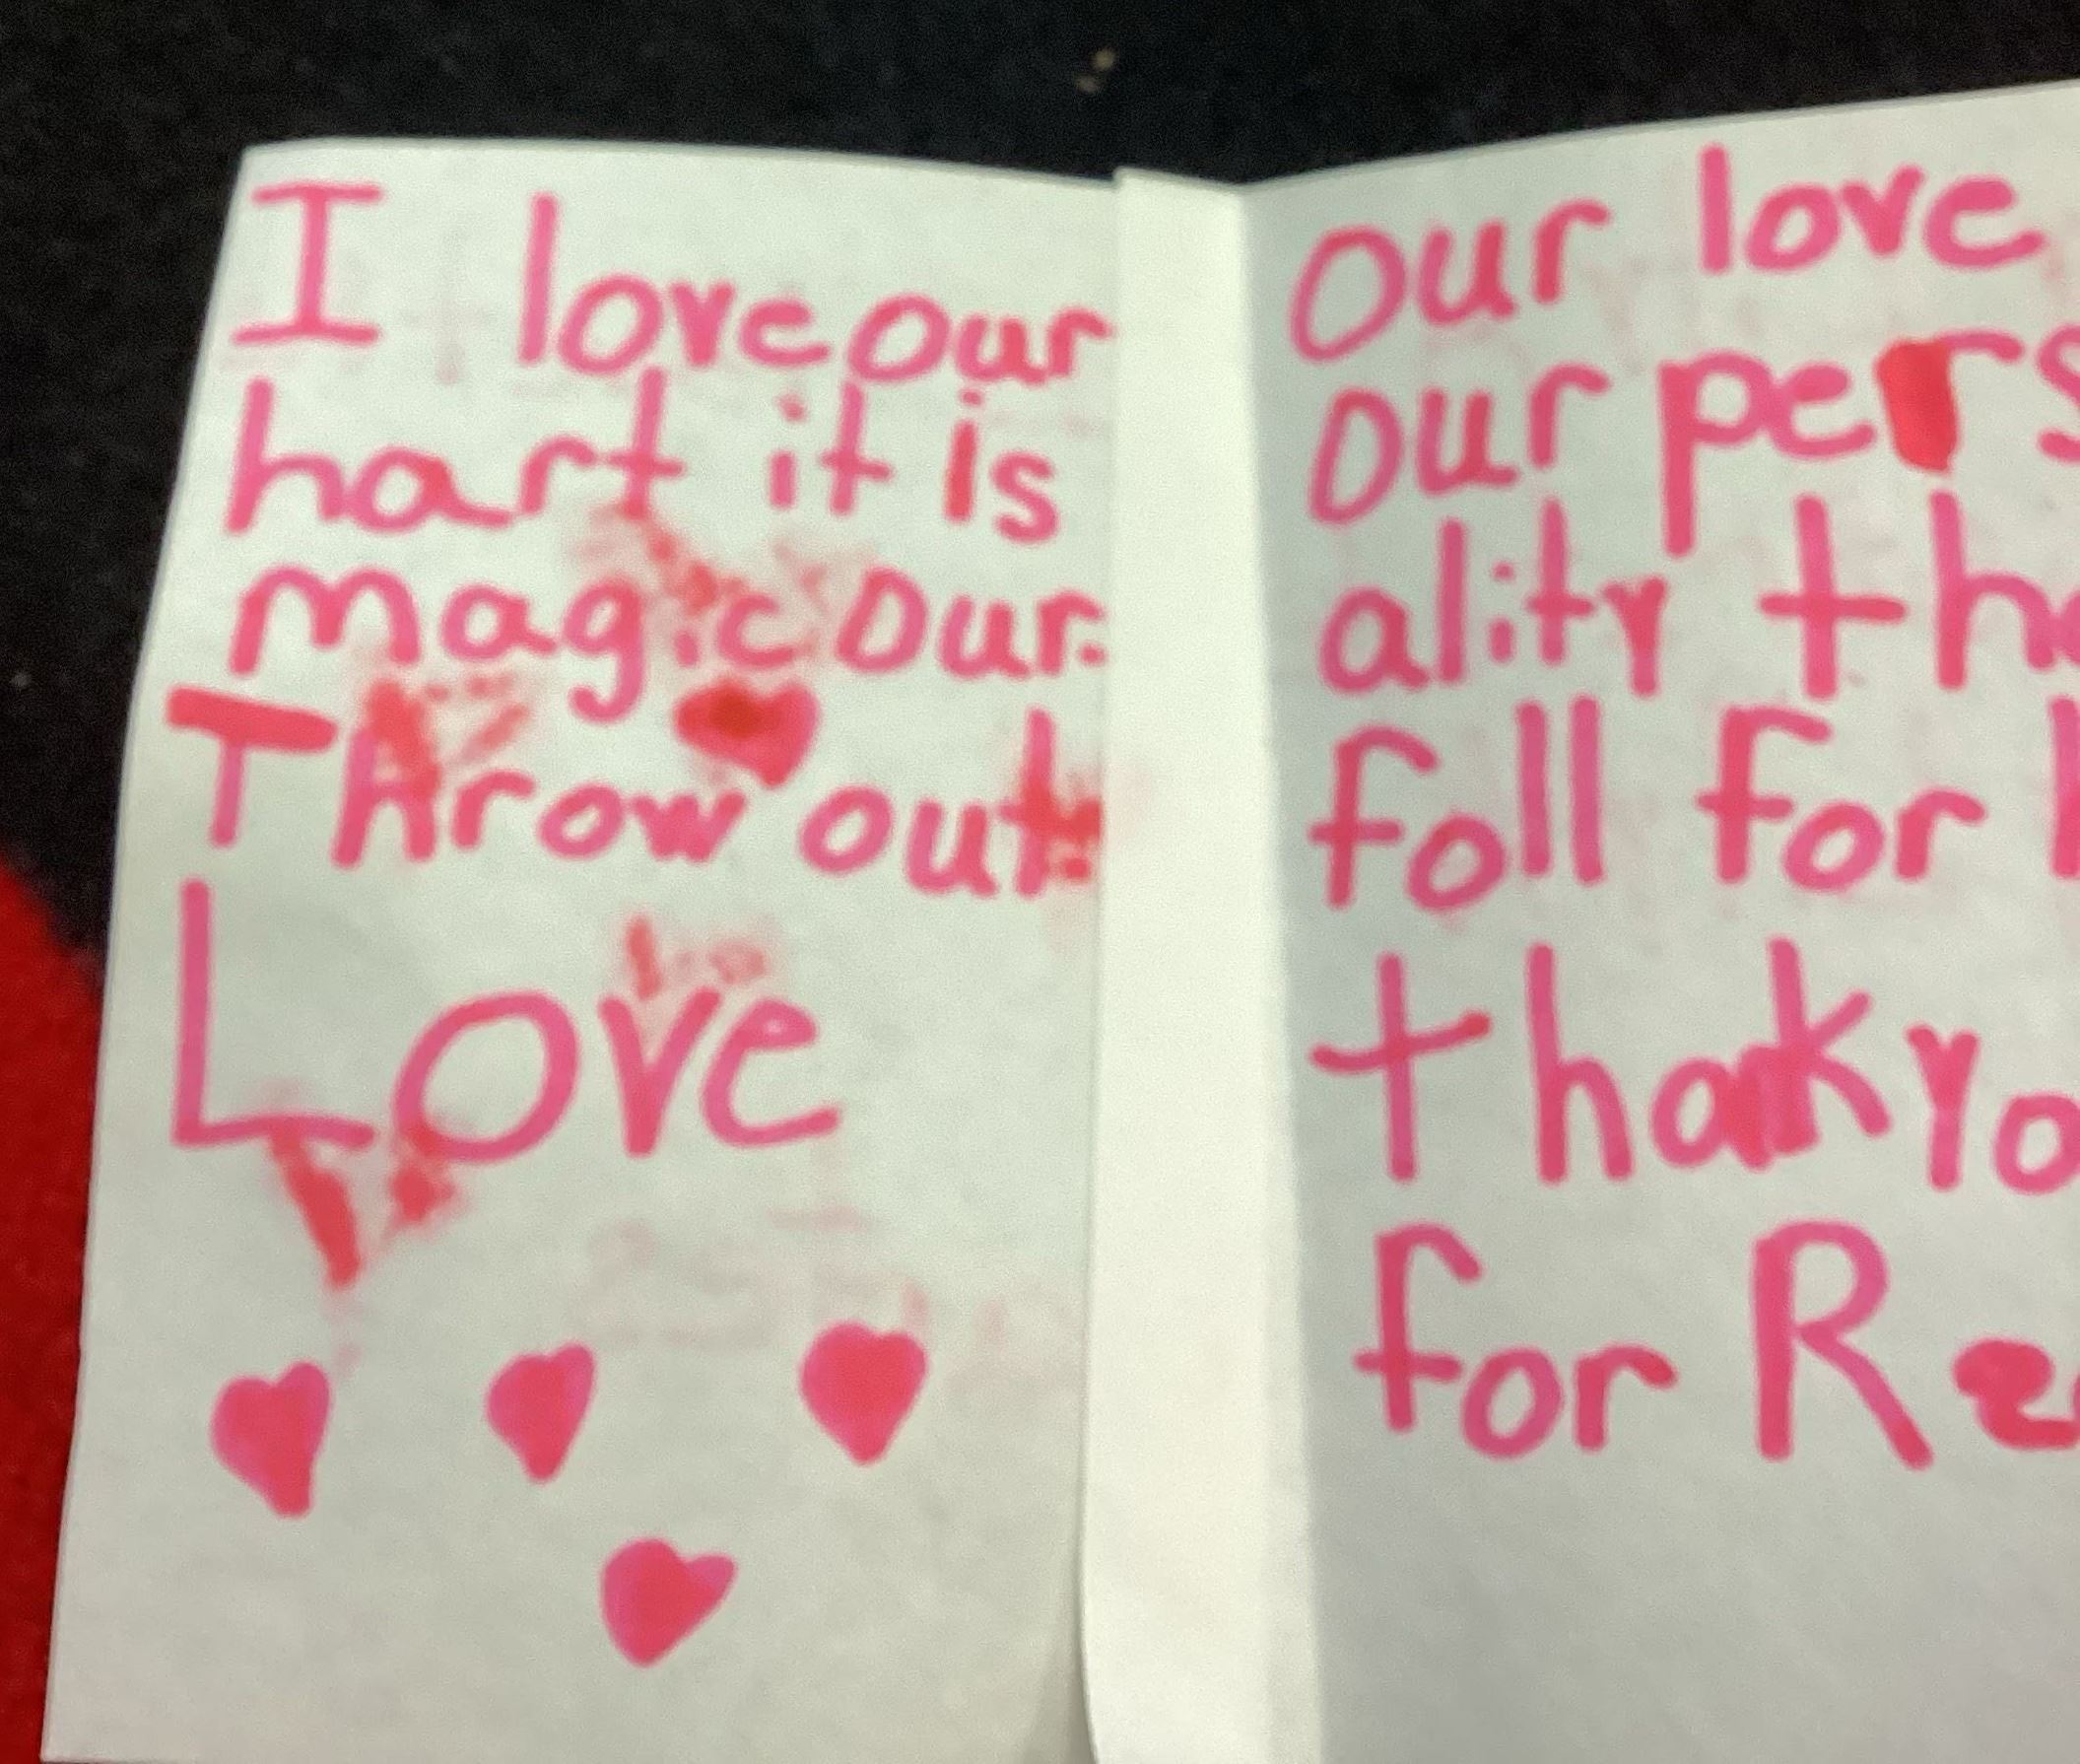 I love our
hart it is
magic our
Throw out
Love
our love
our pers
ality the
foll for
thak yo
for Rea